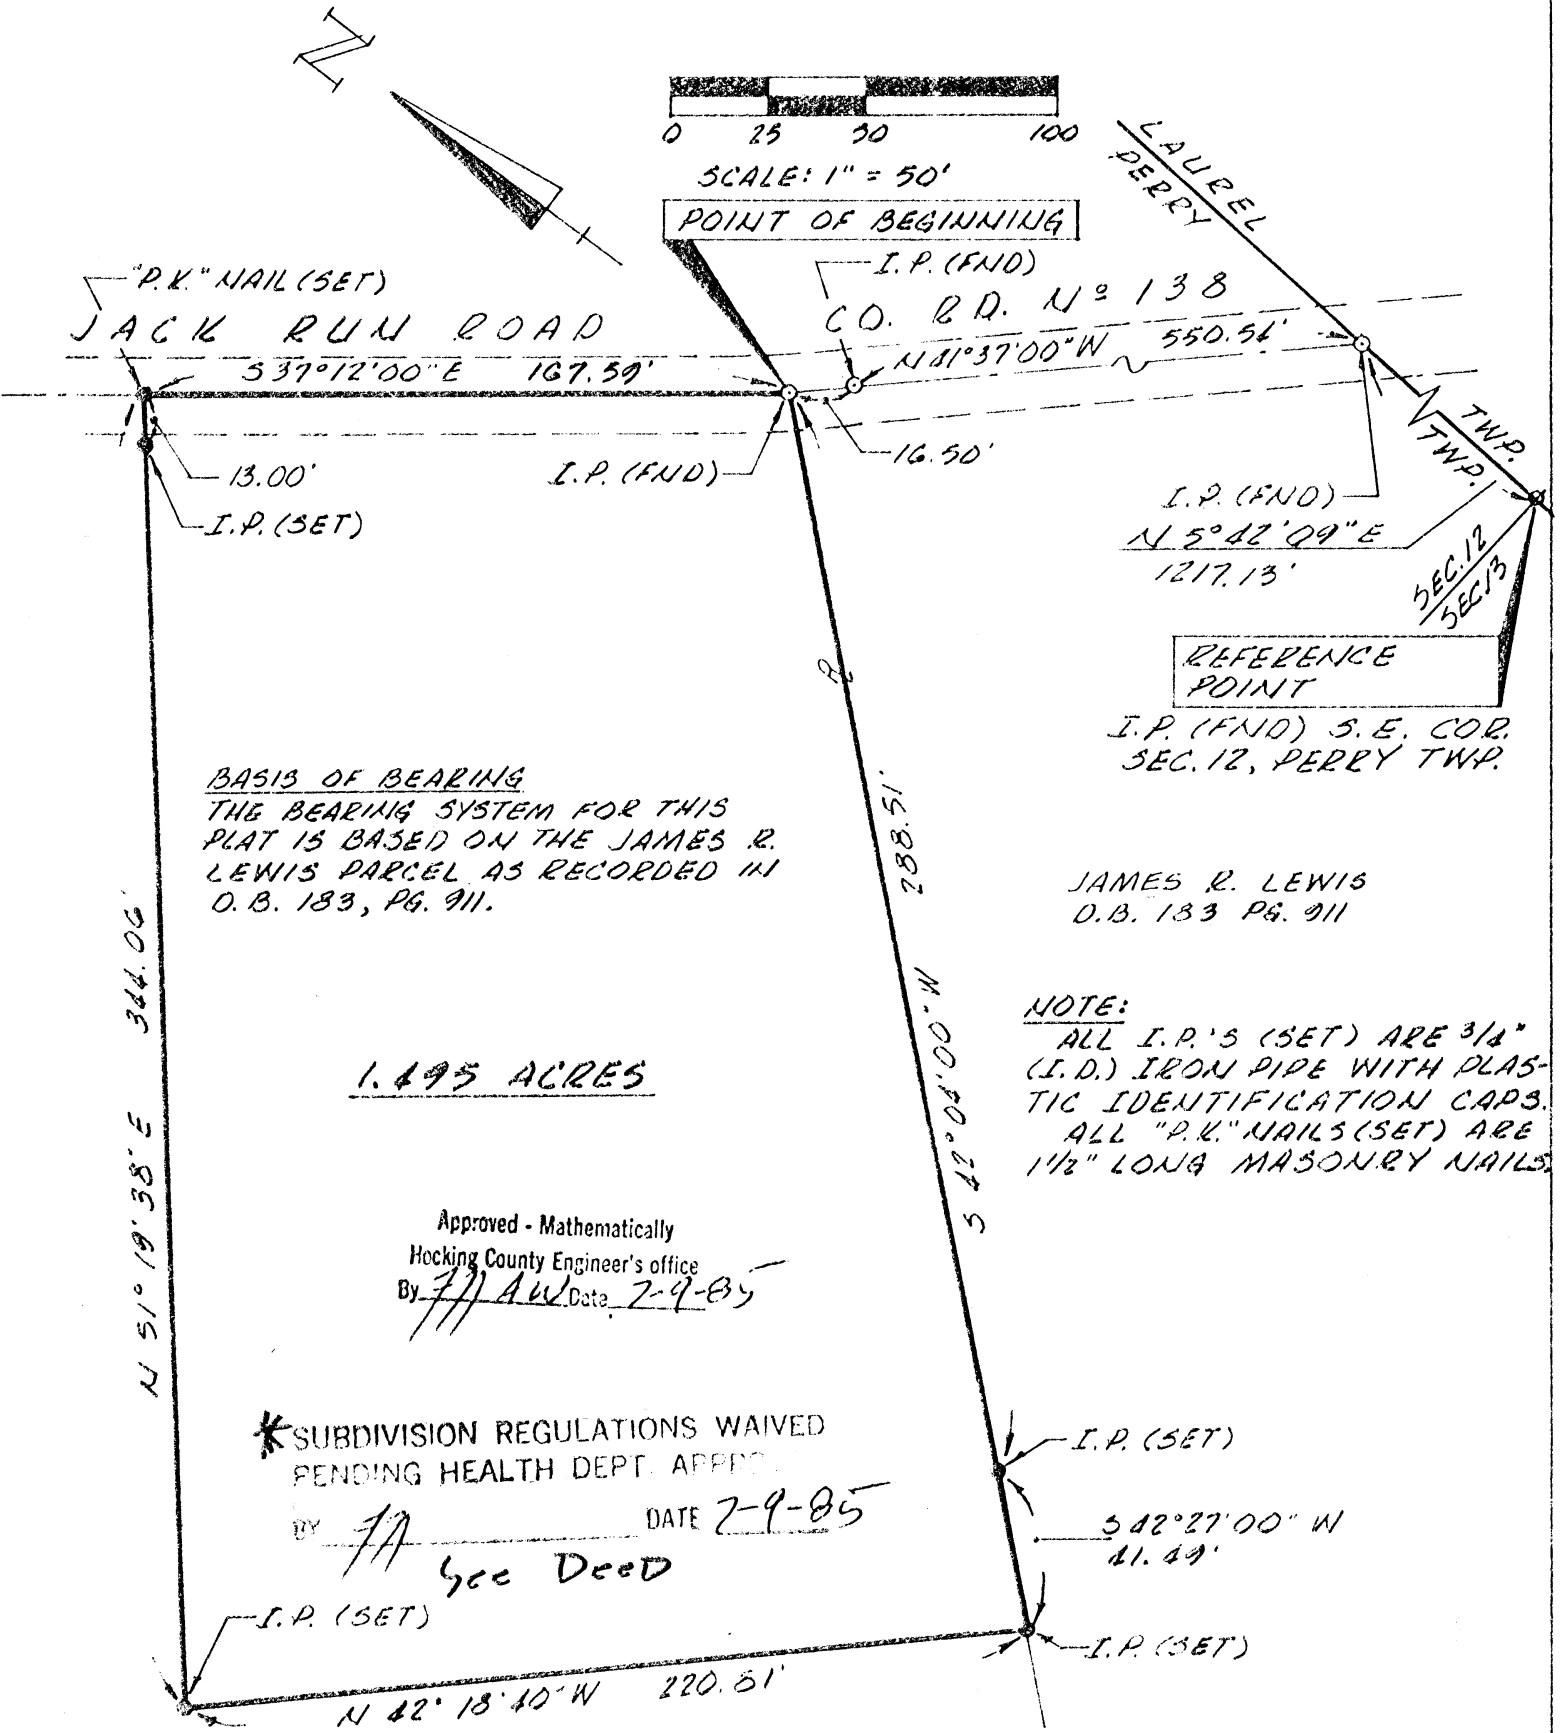 N
0 25 50 100
SCALE: 1" = 50'
POINT OF BEGINNING
LAUREL
PERRY
I.P. (FND)
"P.K." NAIL (SET)
JACK RUN ROAD
CO. RD. Nº 138
S 37°12'00" E 167.59'
N 41°37'00" W 550.54'
TWP.
TWP.
13.00'
I.P. (FND)
16.50'
I.P. (SET)
I.P. (FND)
N 5°42'09" E
1217.13'
SEC. 12
SEC. 13
REFERENCE
POINT
I.P. (FND) S.E. COR.
SEC. 12, PERRY TWP.
BASIS OF BEARING
THE BEARING SYSTEM FOR THIS
PLAT IS BASED ON THE JAMES R.
LEWIS PARCEL AS RECORDED IN
O.B. 183, PG. 911.
288.51'
S 42°04'00" W
JAMES R. LEWIS
O.B. 183 PG. 911
344.06'
N 51°19'38" E
NOTE:
ALL I.P.'S (SET) ARE 3/4"
(I.D.) IRON PIPE WITH PLAS-
TIC IDENTIFICATION CAPS.
ALL "P.K." NAILS (SET) ARE
1 1/2" LONG MASONRY NAILS.
1.495 ACRES
Approved - Mathematically
Hocking County Engineer's office
By Date 7-9-85
* SUBDIVISION REGULATIONS WAIVED
PENDING HEALTH DEPT.
BY DATE 7-9-85
See Deed
I.P. (SET)
S 42°27'00" W
41.49'
I.P. (SET)
I.P. (SET)
N 42°18'40" W 220.51'